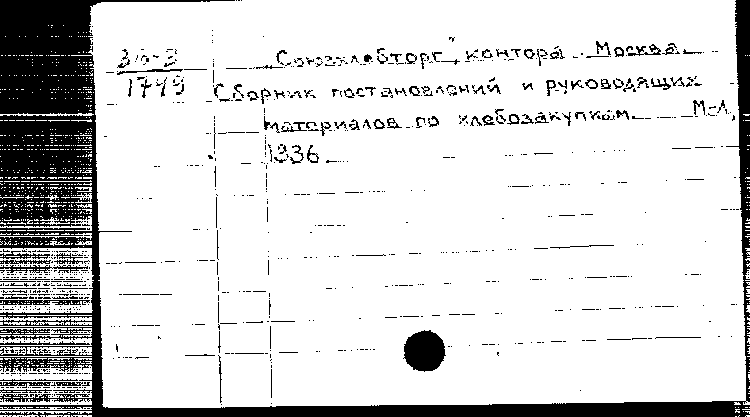 36-3
1749
"Союзхлебторг", контора. Москва.
Сборник постановлений и руководящих
материалов по хлебозакупкам. М-Л,
1936.